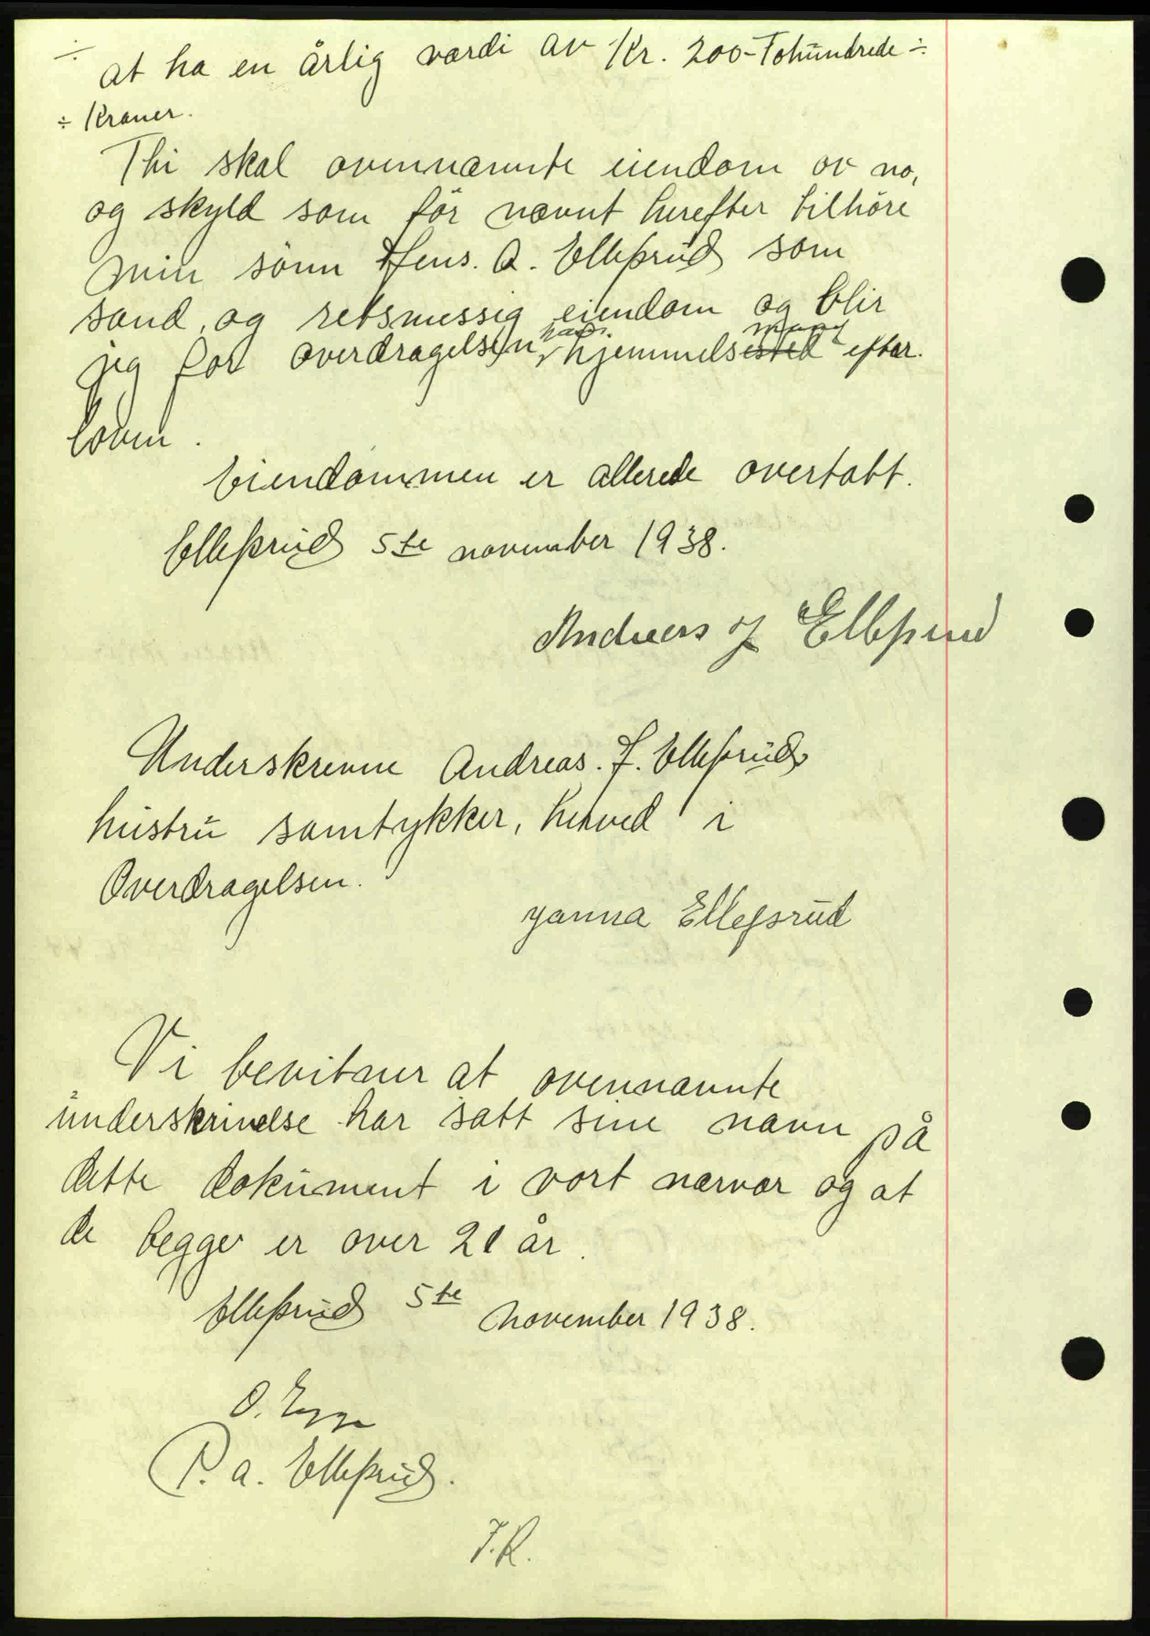 ÷ at ha en årlig værdi av Kr. 200- Tohundrede ÷
÷ Kroner.
Thi skal ovennævnte eiendom av no,
og skyld som før nævnt herefter tilhøre
min sønn Hens. A. Ellefsrud som
sand, og retsmessig eiendom og blir
jeg for overdragelsen hans hjemmels efter
loven.
Eiendommen er allerede overtatt.
Ellefsrud 5te november 1938.
Andreas J Ellefsrud
Underskrevne Andreas. J. Ellefsruds
hustru samtykker, herved i
Overdragelsen.
Janna Ellefsrud
Vi bevitner at ovennævnte
underskrivelse har satt sine navn på
dette dokument i vort nærvær og at
de begge er over 21 år.
Ellefsrud 5te November 1938.
O. Egge
P. A. Ellefsrud.
J.R.